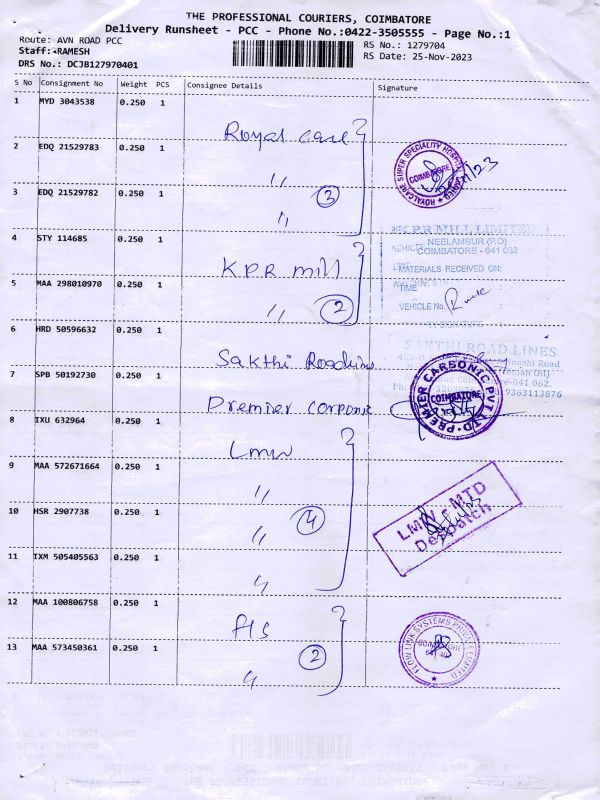 THE PROFESSIONAL COURIERS, COIMBATORE
Delivery Runsheet - PCC - Phone No.:0422-3505555 - Page No.:1
Route: AVN ROAD PCC
RS No.: 1279704
Staff: RAMESH
RS Date: 25-Nov-2023
DRS No.: DCJB127970401
S No Consignment No Weight PCS Consignee Details Signature
1 MYD 3043538 0.250 1
Royal care
2 EDQ 21529783 0.250 1
ROYALCARE SUPER SPECIALITY HOSPITAL
COIMBATORE
"
3 EDQ 21529782 0.250 1
3
"
4 STY 114685 0.250 1
K.P.R. MILL LIMITED
NEELAMBUR (P.O)
COIMBATORE - 641 032
KPR mill
MATERIALS RECEIVED ON:
5 MAA 298010970 0.250 1
TIME
" 2
VEHICLE No.
6 HRD 50596632 0.250 1
SAKTHI ROAD LINES
Sakthi Roadlines
7 SPB 50192730 0.250 1
641 062.
9363113876
PREMIER CARBONIC PVT LTD
COIMBATORE
Premier Carponic
8 IXU 632964 0.250 1
LMW
9 MAA 572671664 0.250 1
"
LMW - MTD
Despatch
10 HSR 2907738 0.250 1
" 4
11 IXM 505405563 0.250 1
"
12 MAA 100806758 0.250 1
FLS
FLOW LINK SYSTEMS PRIVATE LIMITED
COIMBATORE
13 MAA 573450361 0.250 1
2
"